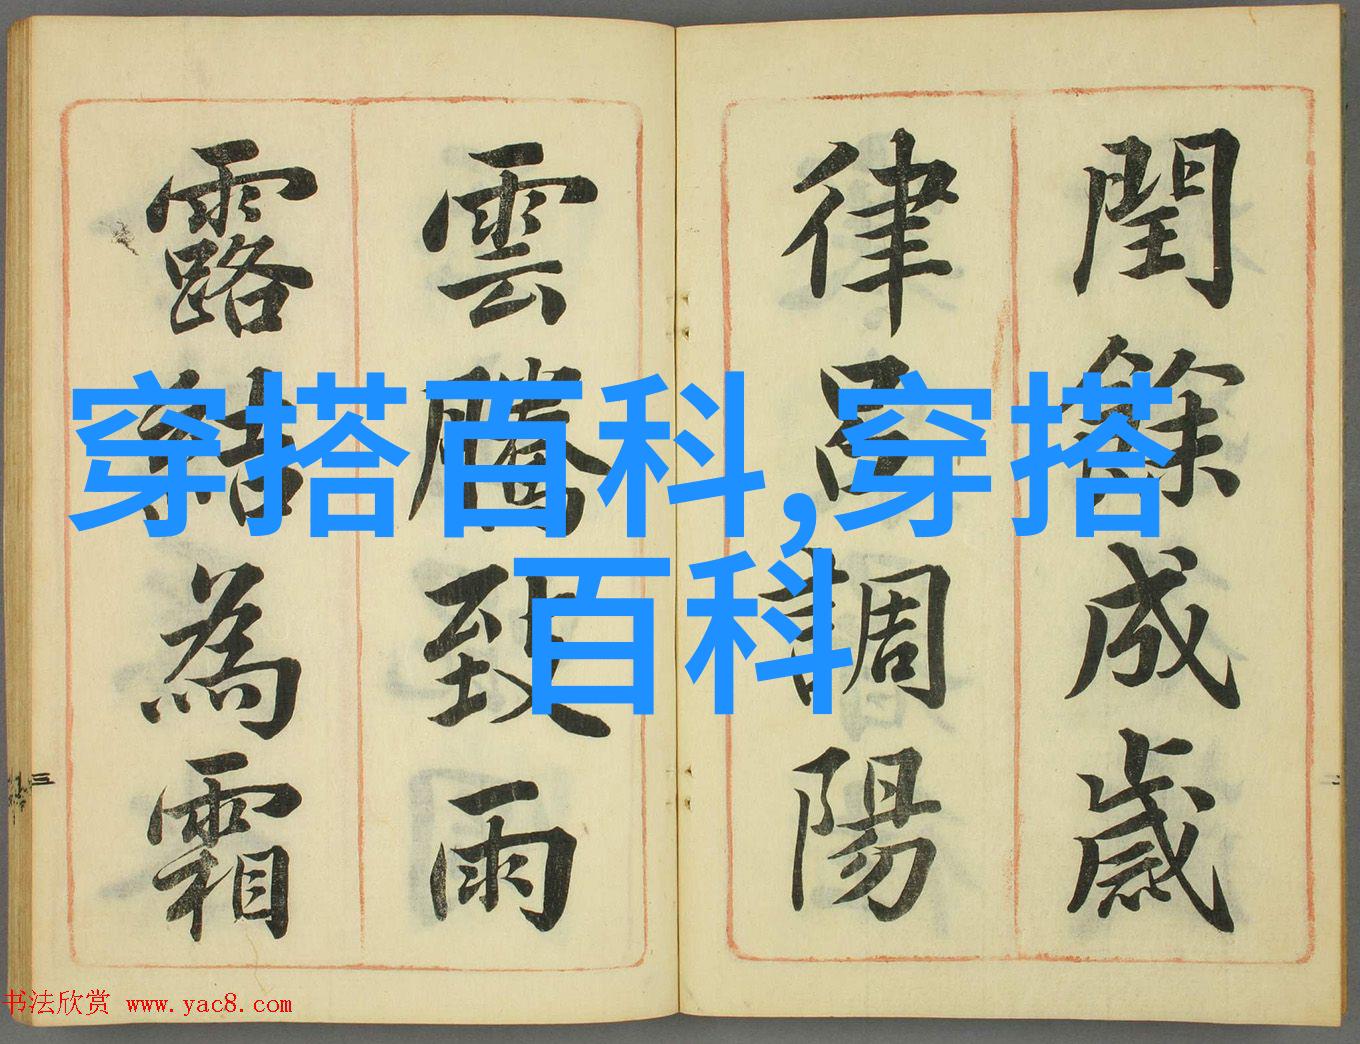 閏餘成歲
律呂調陽
雲騰致雨
露結為霜
穿搭百科,穿搭
百科
三
二
书法欣赏 www.yac8.com